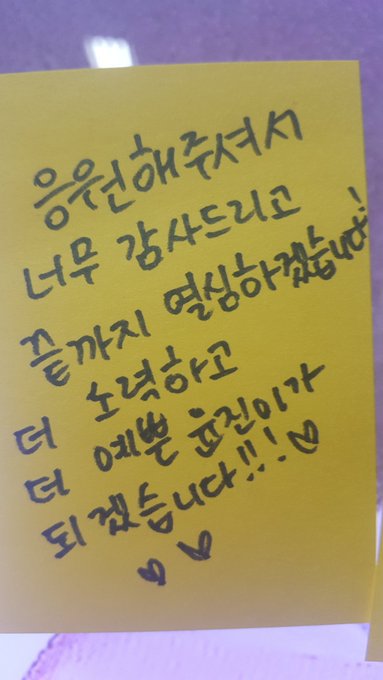 응원해주셔서
너무 감사드리고
끝까지 열심하겠습니다!
더 노력하고
더 예쁜 윤진이가
되겠습니다!!!♡
♡ ♡